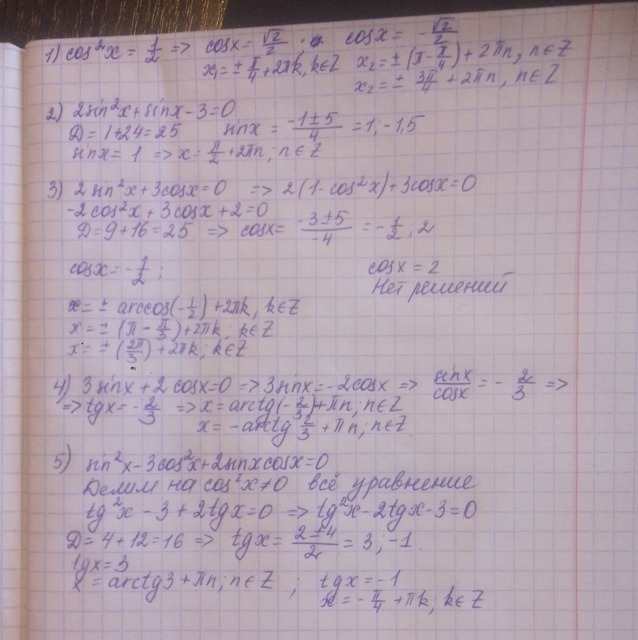 1) cos²x = 1/2 => cosx = √2/2 ; и cosx = -√2/2
x₁ = ± π/4 + 2πk, k∈Z x₂ = ± (π - π/4) + 2πn, n∈Z
x₂ = ± 3π/4 + 2πn, n∈Z
2) 2sin²x + sinx - 3 = 0
D = 1 + 24 = 25 sinx = (-1 ± 5)/4 = 1; -1,5
sinx = 1 => x = π/2 + 2πn; n∈Z
3) 2sin²x + 3cosx = 0 => 2(1 - cos²x) + 3cosx = 0
-2cos²x + 3cosx + 2 = 0
D = 9 + 16 = 25 => cosx = (-3 ± 5)/-4 = -1/2; 2
cosx = -1/2; cosx = 2
Нет решений
x = ± arccos(-1/2) + 2πk, k∈Z
x = ± (π - π/3) + 2πk; k∈Z
x = ± (2π/3) + 2πk; k∈Z
4) 3sinx + 2cosx = 0 => 3sinx = -2cosx => sinx/cosx = -2/3 =>
=> tgx = -2/3 => x = arctg(-2/3) + πn; n∈Z
x = -arctg 2/3 + πn; n∈Z
5) sin²x - 3cos²x + 2sinxcosx = 0
Делим на cos²x ≠ 0 всё уравнение
tg²x - 3 + 2tgx = 0 => tg²x - 2tgx - 3 = 0
D = 4 + 12 = 16 => tgx = (2 ± 4)/2 = 3; -1
tgx = 3
x = arctg3 + πn; n∈Z ; tgx = -1
x = -π/4 + πk; k∈Z